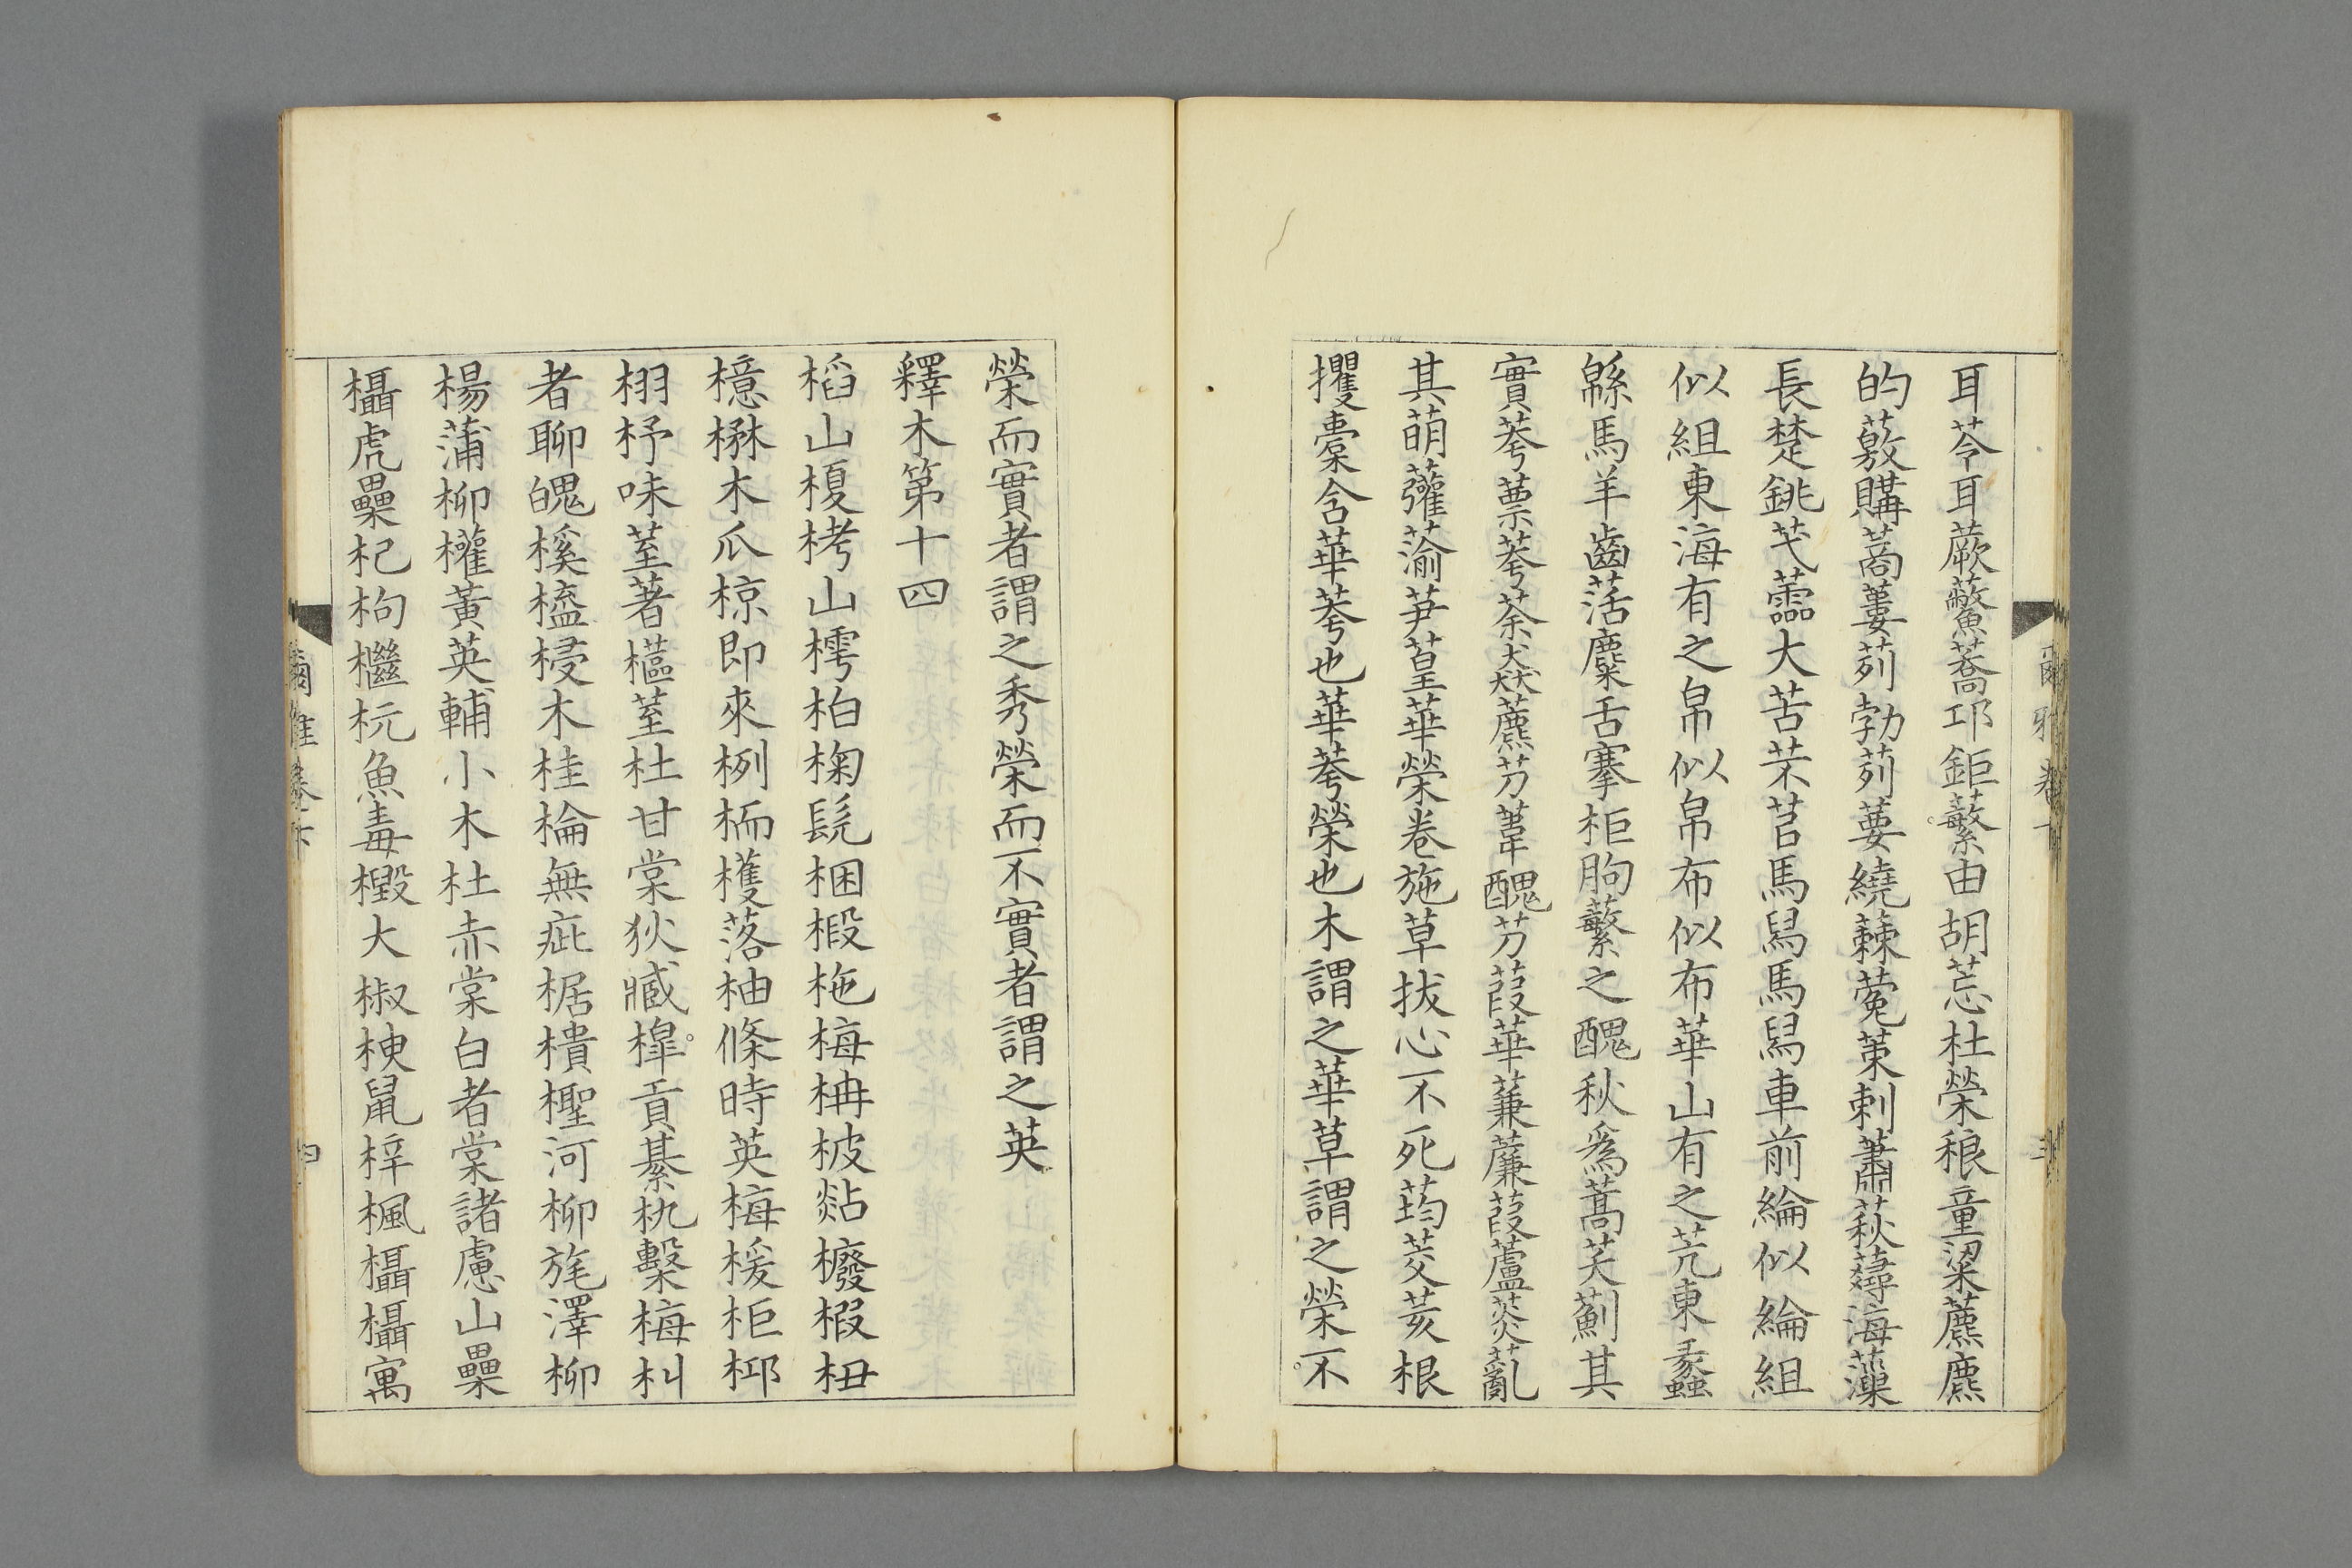 耳苓耳蕨虌蕎邛鉅蘩由胡莣杜榮稂童粱藨麃
的薂購蔏蔞茢勃茢葽繞蕀蒬茦刺蕭萩薚海藻
長楚銚芅蘦大苦芣苢馬舄馬舄車前綸似綸組
似組東海有之帛似帛布似布華山有之荒東蠡
緜馬羊齒萿麋舌搴柜朐蘩之醜秋爲蒿芺薊其
實荂蔈荂荼猋藨芀葦醜芀葭華蒹薕葭蘆菼薍
其萌虇蕍芛葟華榮卷施草拔心不死荺茭荄根
攫橐含華荂也華荂榮也木謂之華草謂之榮不
榮而實者謂之秀榮而不實者謂之英
釋木第十四
槄山榎栲山樗柏椈髡梱椴柂梅柟柀煔櫠椵杻
檍楙木瓜椋即來栵栭檴落柚條時英梅楥柜桏
栩杼味荎著櫙荎杜甘棠狄臧槔貢綦朹檕梅朻
者聊魄榽橀梫木桂棆無疵椐樻檉河柳旄澤柳
楊蒲柳權黃英輔小木杜赤棠白者棠諸慮山櫐
欇虎櫐杞枸檵杬魚毒檓大椒楰鼠梓楓欇欇寓
爾雅卷下